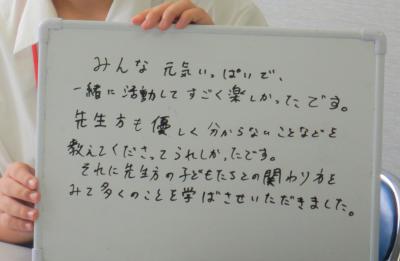 みんな元気いっぱいで、
一緒に活動してすごく楽しかったです。
先生方も優しく分からないことなどを
教えてくださってうれしかったです。
それに先生方の子どもたちとの関わり方を
みて多くのことを学ばさせいただきました。